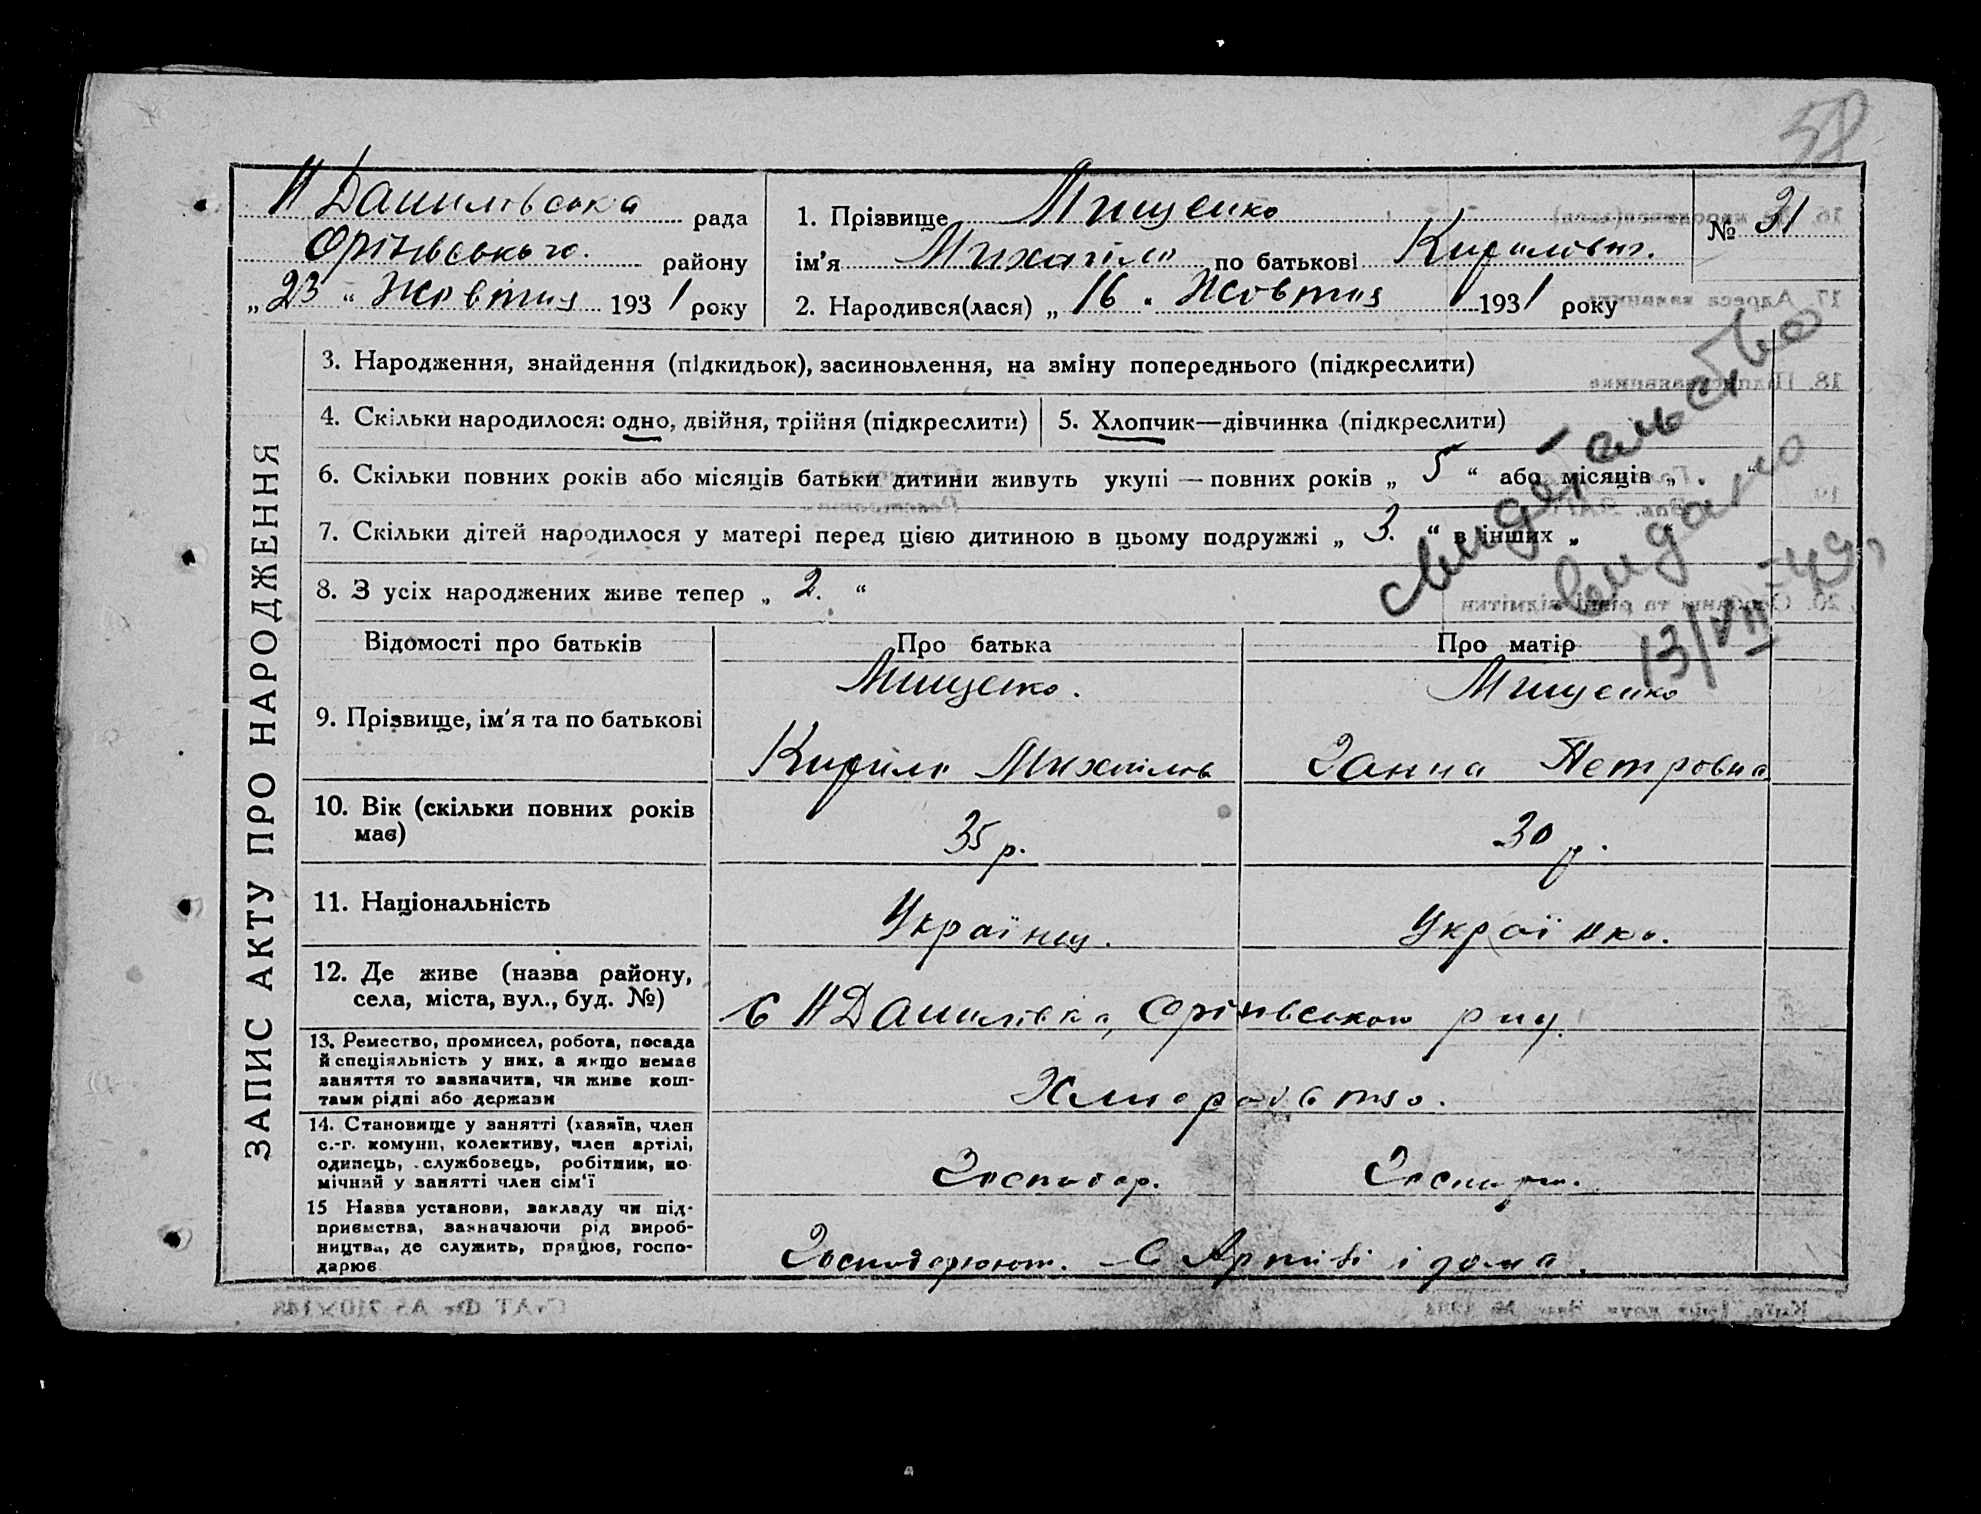 58
Н Данилівська рада
Орінівського району
„ 23 “ Жовтня 1931 року
1. Прізвище Мищенко
ім'я Михаіло по батькові Кирилович.
2. Народився(лася) „ 16 . Жовтня 1931 року
№ 31
ЗАПИС АКТУ ПРО НАРОДЖЕННЯ
3. Народження, знайдення (підкидьок), засиновлення, на зміну попереднього (підкреслити)
4. Скільки народилося: одно, двійня, трійня (підкреслити)
5. Хлопчик—дівчинка (підкреслити)
6. Скільки повних років або місяців батьки дитини живуть укупі — повних років „ 5 “ або місяців „ . “
7. Скільки дітей народилося у матері перед цією дитиною в цьому подружжі „ 3. “ в інших „
8. З усіх народжених живе тепер „ 2. “
свидетельство
видано
13/VII-49,
Відомості про батьків
Про батька
Про матір
9. Прізвище, ім'я та по батькові
Мищенко.
Кирило Михаілов
Мищенко
Ганна Петровна
10. Вік (скільки повних років
має)
35 р.
30 р.
11. Національність
Українец.
Українка.
12. Де живе (назва району,
села, міста, вул., буд. №)
с Н Данилівка, Орінівського
13. Ремество, промисел, робота, посада
й спеціяльність у них, а якщо немає
заняття то зазначити, чи живе кош-
тами рідні або держави
Хлиоробство.
14. Становище у занятті (хазяїн, член
с.-г. комуни, колективу, член артілі,
одинець, службовець, робітник, по-
мічний у занятті член сім'ї
Господар.
15 Назва установи, закладу чи під-
приємства, зазначаючи рід вироб-
ництва, де служить, працює, госпо-
дарює
Господарюют. В Артілі і дома.